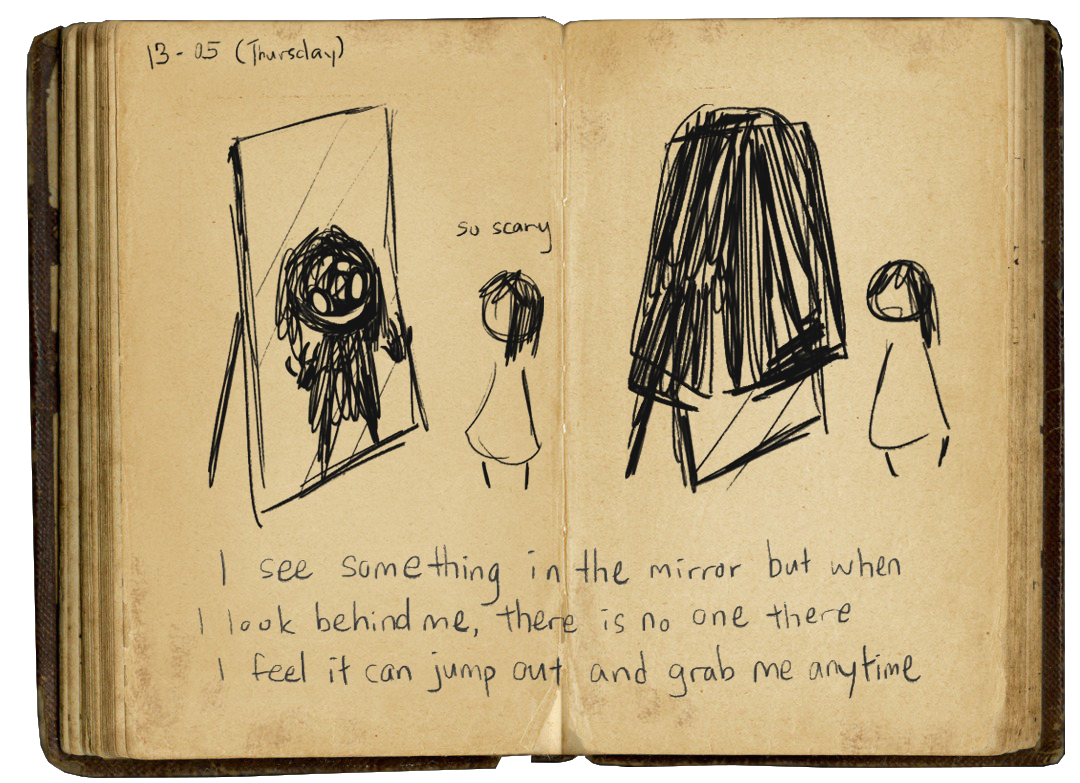 13-05 (Thursday)
so scary
I see something in the mirror but when
I look behind me, there is no one there
I feel it can jump out and grab me anytime